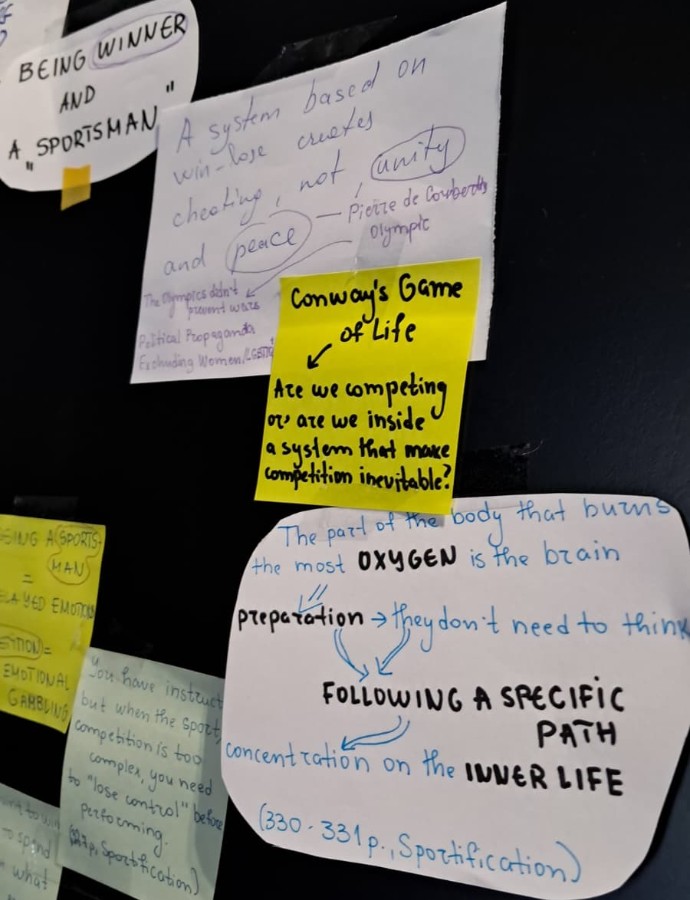 BEING WINNER
AND
A "SPORTSMAN"
A system based on
win-lose creates
cheating, not, unity
and peace — Pierre de Coubertin
Olympic
The Olympics didn't
prevent wars
Political Propaganda
Excluding Women/LGBTIQ
Conway's Game
of Life
Are we competing
or are we inside
a system that make
competition inevitable?
The part of the body that burns
the most OXYGEN is the brain
preparation → they don't need to think
FOLLOWING A SPECIFIC
PATH
concentration on the INNER LIFE
(330-331p., Sportification)
A SPORTS-
MAN
=
EMOTIONS
=
EMOTIONAL
GAMBLING
You have instruct
but when the sport,
competition is too
complex, you need
to "lose control" before
performing.
p, Sportification)
to spend
what